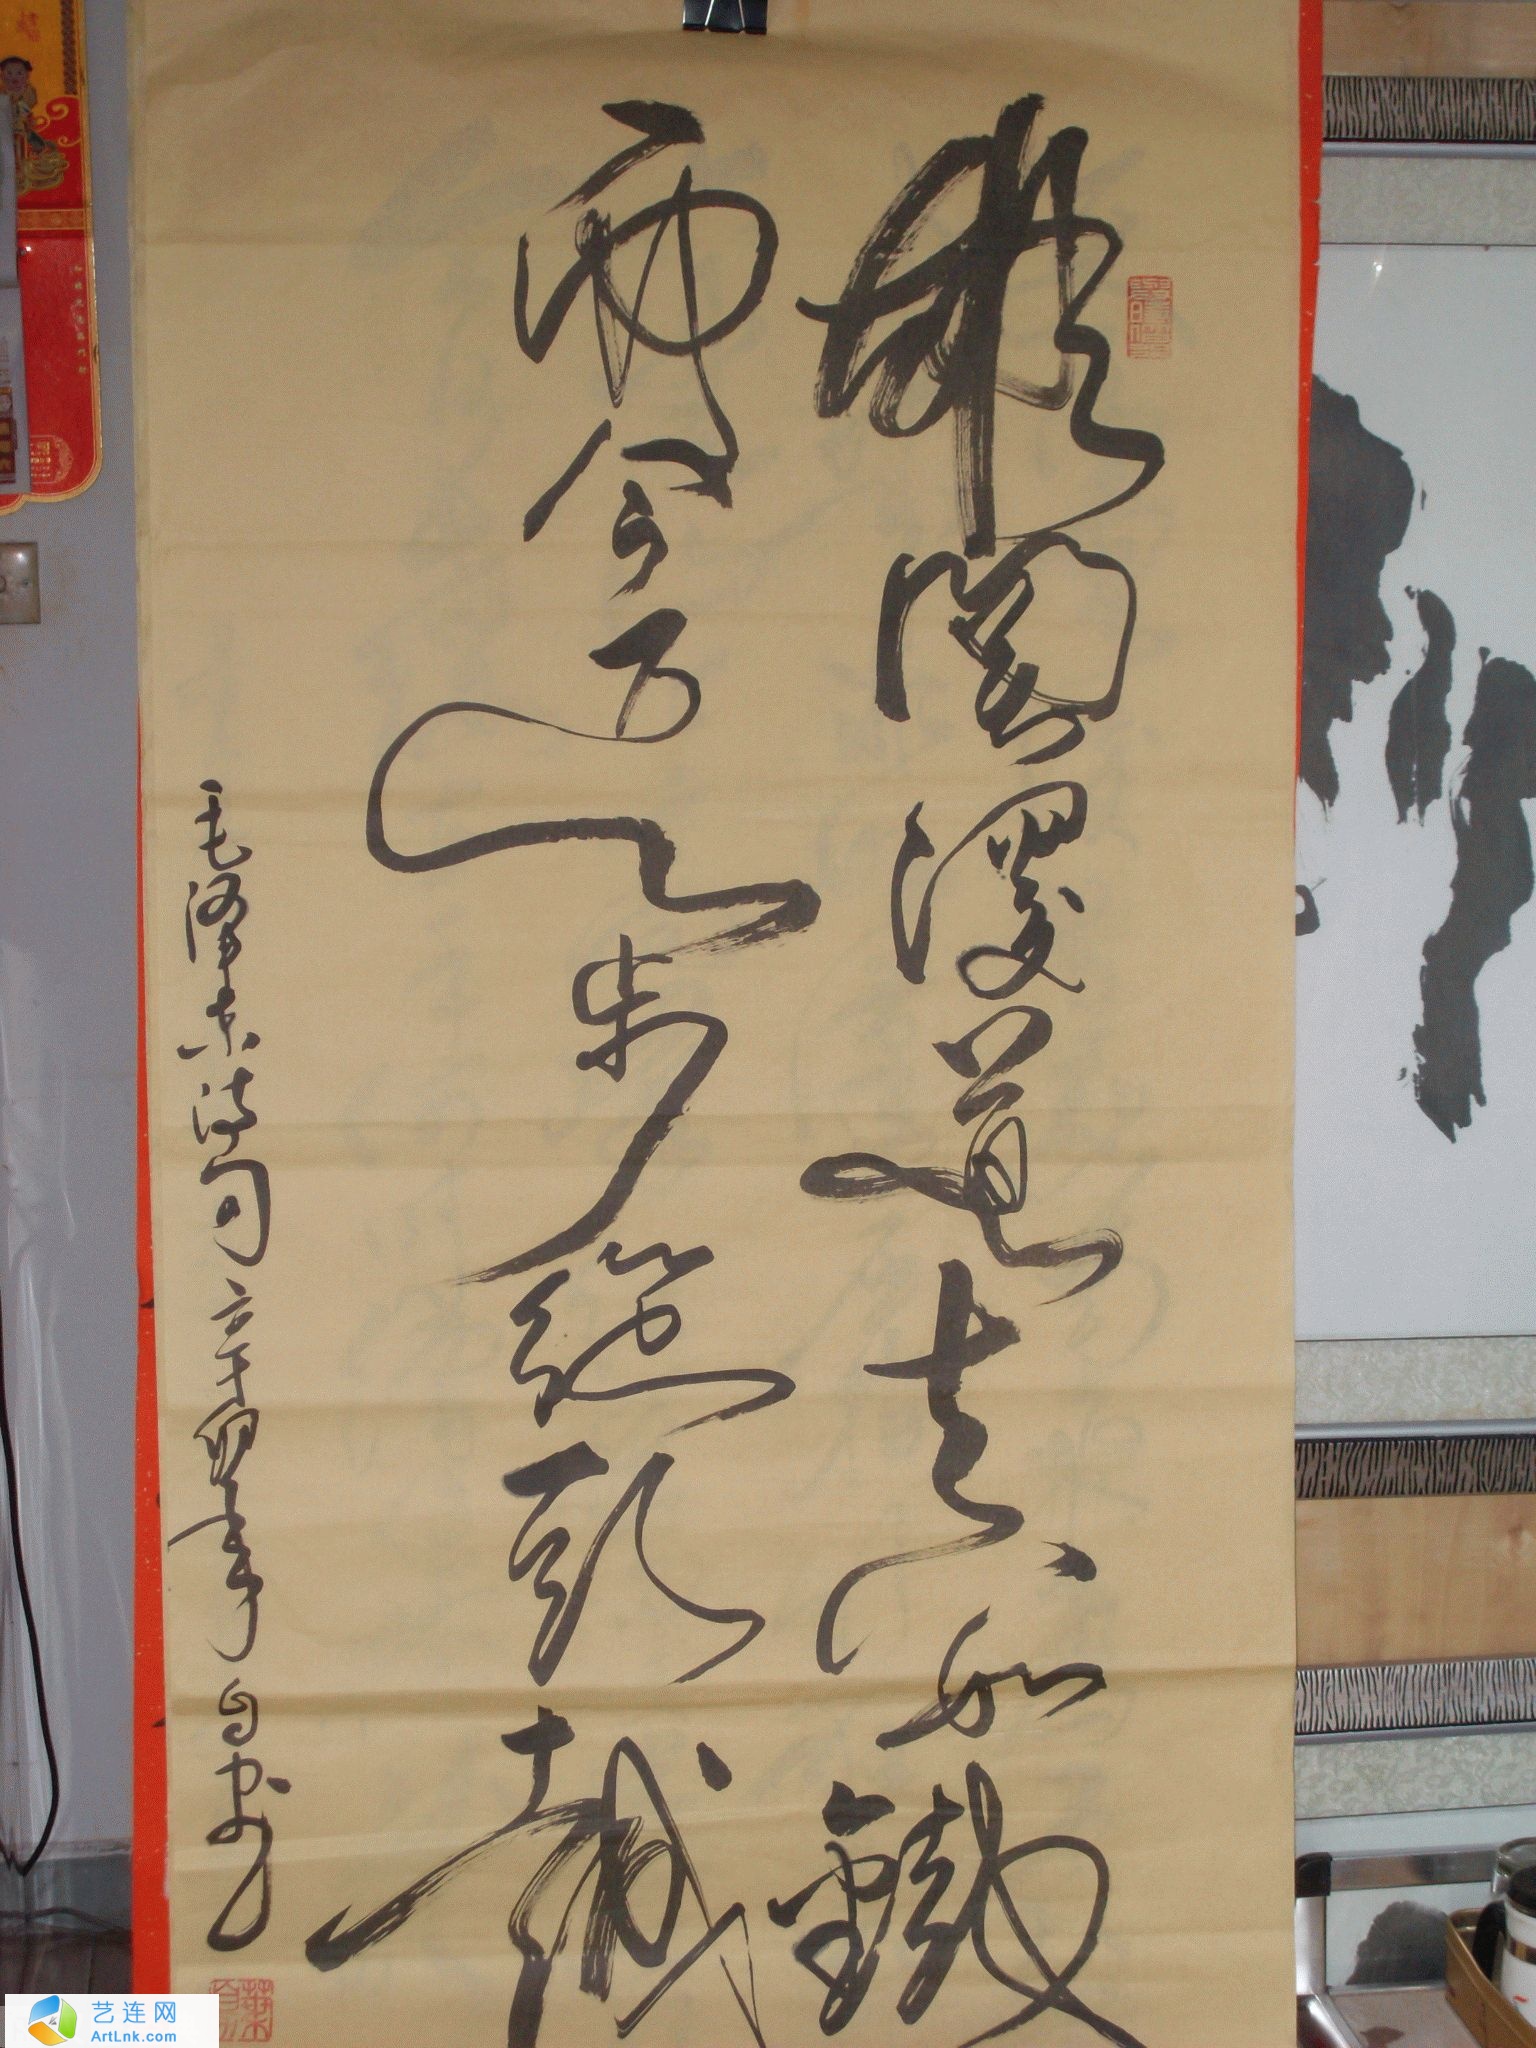 雄關漫道真如鐵
而今迈步從頭越
毛泽东诗句 辛卯年
艺连网
ArtLnk.com